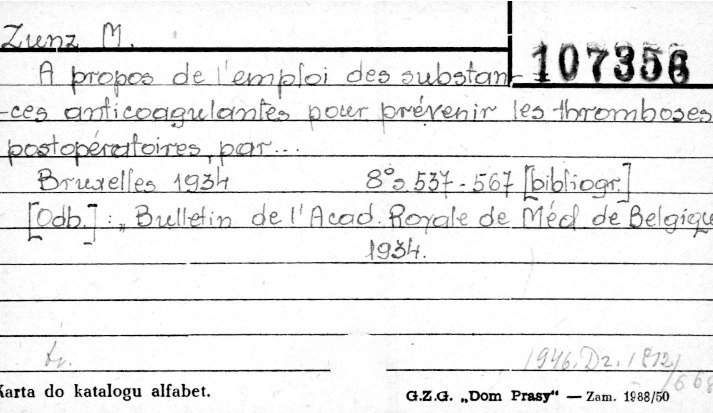 Zunz M.
107356
A propos de l'emploi des substan-
-ces anticoagulantes pour prévenir les thromboses
postopératoires, par...
Bruxelles 1934 8° s. 537-567 [bibliogr.]
[Odb.]: „Bulletin de l'Acad. Royale de Méd de Belgique
1934.
tr. 1946. Dz. 1812/
Karta do katalogu alfabet.
G.Z.G. „Dom Prasy" — Zam. 1988/50